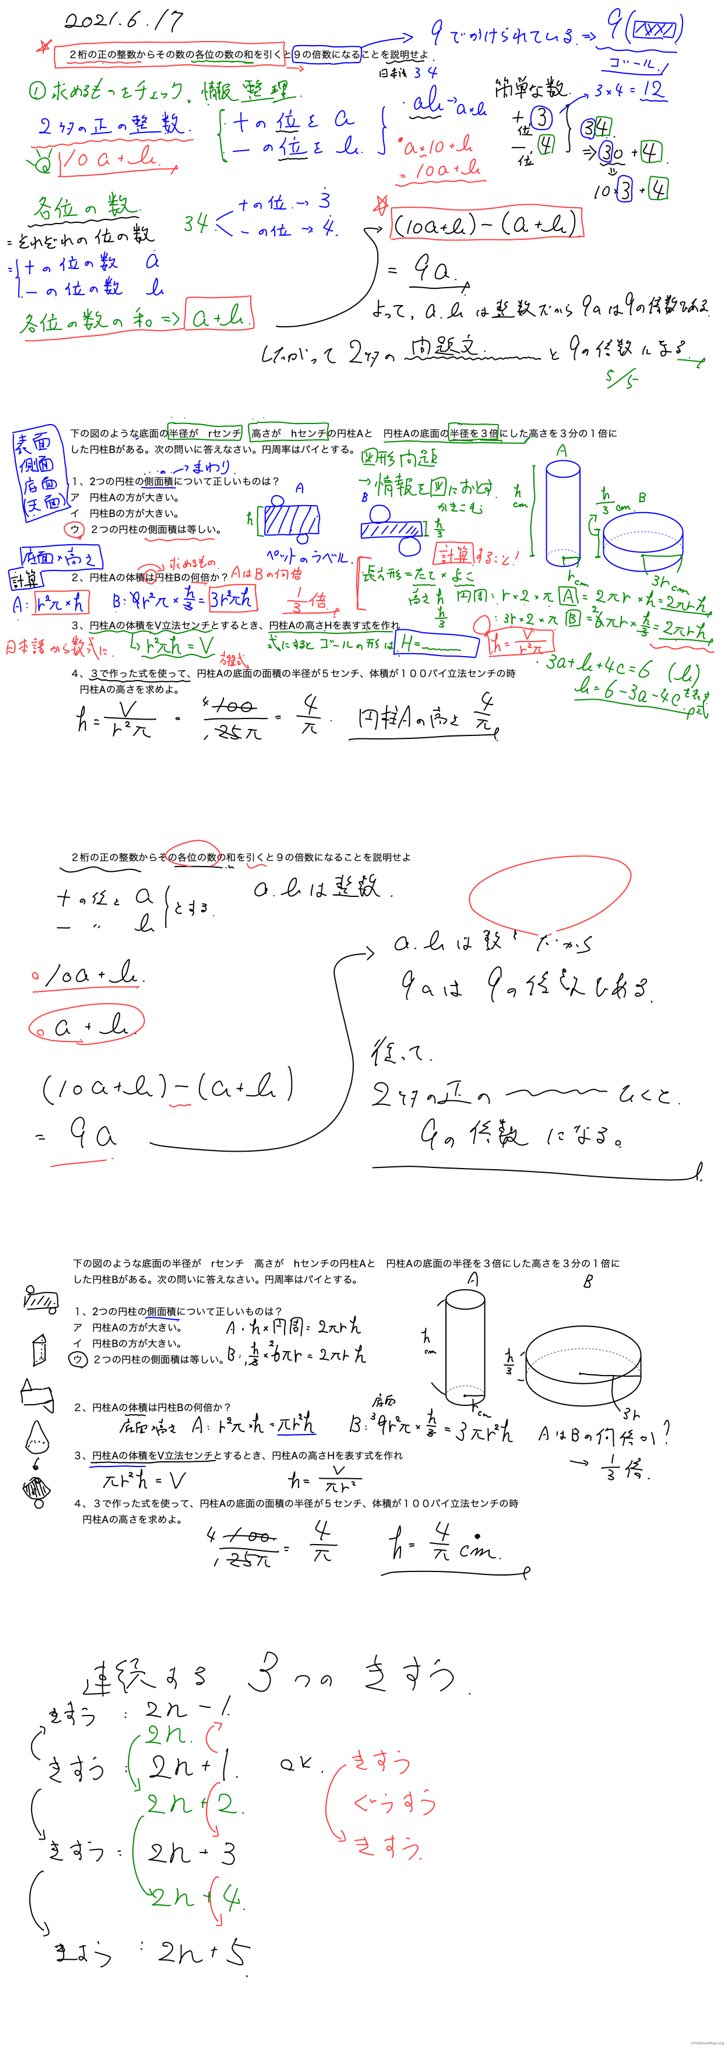 2021.6.17
9でかけられている ⇒ 9( )
ゴール!
2桁の正の整数からその数の各位の数の和を引くと9の倍数になることを説明せよ
日本語 34
① 求めるものをチェック、情報整理.
2ケタの正の整数.
10a+b
十の位を a
一の位を b.
ab→a×b
a×10+b
=10a+b
簡単な数.
十位 3
一位 4
3×4=12
34
⇒30+4
10×3+4
各位の数
=それぞれの位の数
=十の位の数 a
一の位の数 b
34
十の位→3
一の位→4.
各位の数の和。⇒ a+b.
(10a+b)-(a+b)
= 9a.
よって、a.bは整数だから9aは9の倍数である.
したがって2ケタの 問題文 と9の倍数になる.
5/5
表面
側面
底面
下の図のような底面の半径が rセンチ 高さが hセンチの円柱Aと 円柱Aの底面の半径を3倍にした高さを3分の1倍に
した円柱Bがある。次の問いに答えなさい。円周率はパイとする。
…→まわり.
1、2つの円柱の側面積について正しいものは?
ア 円柱Aの方が大きい。
イ 円柱Bの方が大きい。
ウ 2つの円柱の側面積は等しい。
A
B
h
h/3
ペットのラベル.
図形問題
→情報を図におとす
かきこむ
A
h cm
r cm
h/3 cm
B
3r cm
計算すること!
底面×高さ
計算
求めるもの
2、円柱Aの体積は円柱Bの何倍か?
AはBの何倍
A: r²π×h
B: 9r²π×h/3=3r²πh
1/3倍
長方形=たて×よこ
高さh 円周:r×2×π A=2πr×h=2πrh
h/3 :3r×2×π B=6πr×h/3=2πrh
3、円柱Aの体積をV立法センチとするとき、円柱Aの高さHを表す式を作れ
日本語から数式に.
r²πh=V
方程式
式にするとゴールの形は H=
h=V/r²π
・3a+b+4c=6 (b)
b=6-3a-4c
4、3で作った式を使って、円柱Aの底面の面積の半径が5センチ、体積が100パイ立法センチの時
円柱Aの高さを求めよ。
h=V/r²π = 4 100/25π = 4/π. 円柱Aの高さ 4/π
2桁の正の整数からその各位の数の和を引くと9の倍数になることを説明せよ
十の位を a
一 〃 b
とする.
a.bは整数.
10a+b.
a+b.
(10a+b)-(a+b)
= 9a
a.bは だから
9aは 9の倍数である.
従って.
2ケタの正の ひくと.
9の倍数になる。
下の図のような底面の半径が rセンチ 高さが hセンチの円柱Aと 円柱Aの底面の半径を3倍にした高さを3分の1倍に
した円柱Bがある。次の問いに答えなさい。円周率はパイとする。
1、2つの円柱の側面積について正しいものは?
ア 円柱Aの方が大きい。
イ 円柱Bの方が大きい。
ウ 2つの円柱の側面積は等しい。
A:h×円周=2πrh
B:h/3×6πr=2πrh
A
h cm
r cm
B
h/3
3r
2、円柱Aの体積は円柱Bの何倍か?
底面×高さ A:r²π×h=πr²h
底面
B: 9r²π×h/3=3πr²h
AはBの何倍か?
→ 1/3倍.
3、円柱Aの体積をV立法センチとするとき、円柱Aの高さHを表す式を作れ
πr²h=V
h=V/πr²
4、3で作った式を使って、円柱Aの底面の面積の半径が5センチ、体積が100パイ立法センチの時
円柱Aの高さを求めよ。
4 100/25π = 4/π
h=4/π cm.
連続する 3つの きすう.
きすう:2n-1.
2n.
きすう:2n+1. OK.
2n+2.
きすう:2n+3
2n+4.
きすう:2n+5.
きすう
ぐうすう
きすう.